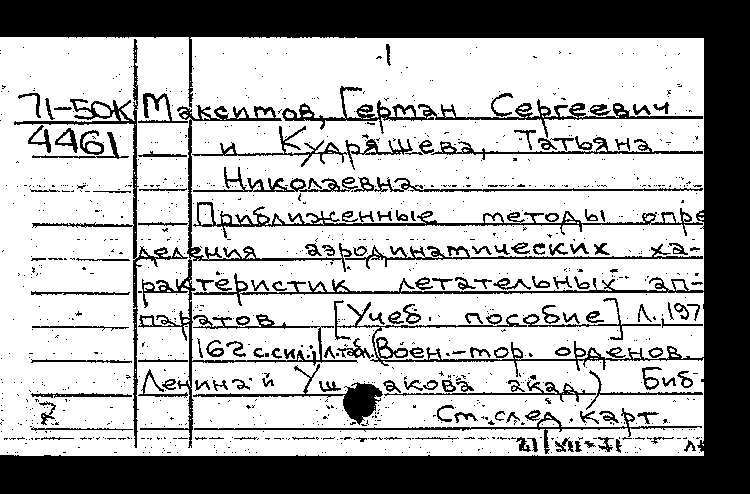 1
71-50К Максимов, Герман Сергеевич
4461 и Кудряшева, Татьяна
Николаевна.
Приближенные методы опре
деления аэродинамических ха-
рактеристик летательных ап-
паратов. [Учеб. пособие] Л., 197
162 с. с ил.; 1 л. табл. (Воен.-мор. орденов
Ленина и Ушакова акад.) Биб-
См. след. карт.
21/VII-71